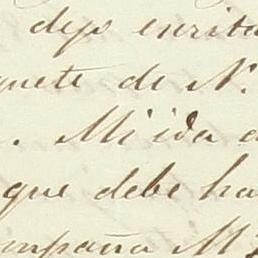 dejo escrita
quete de N.
. Mi ida a
que debe ha
ompaña M